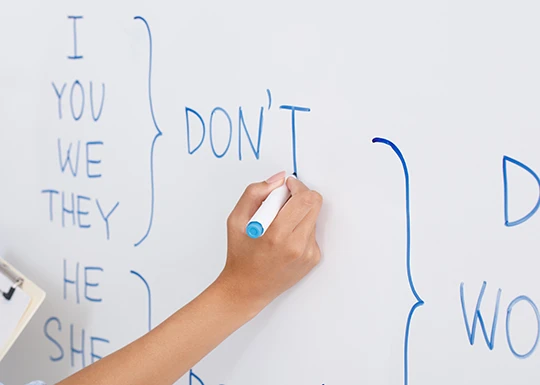 I
YOU
WE
THEY
DON'T
HE
SHE
WO